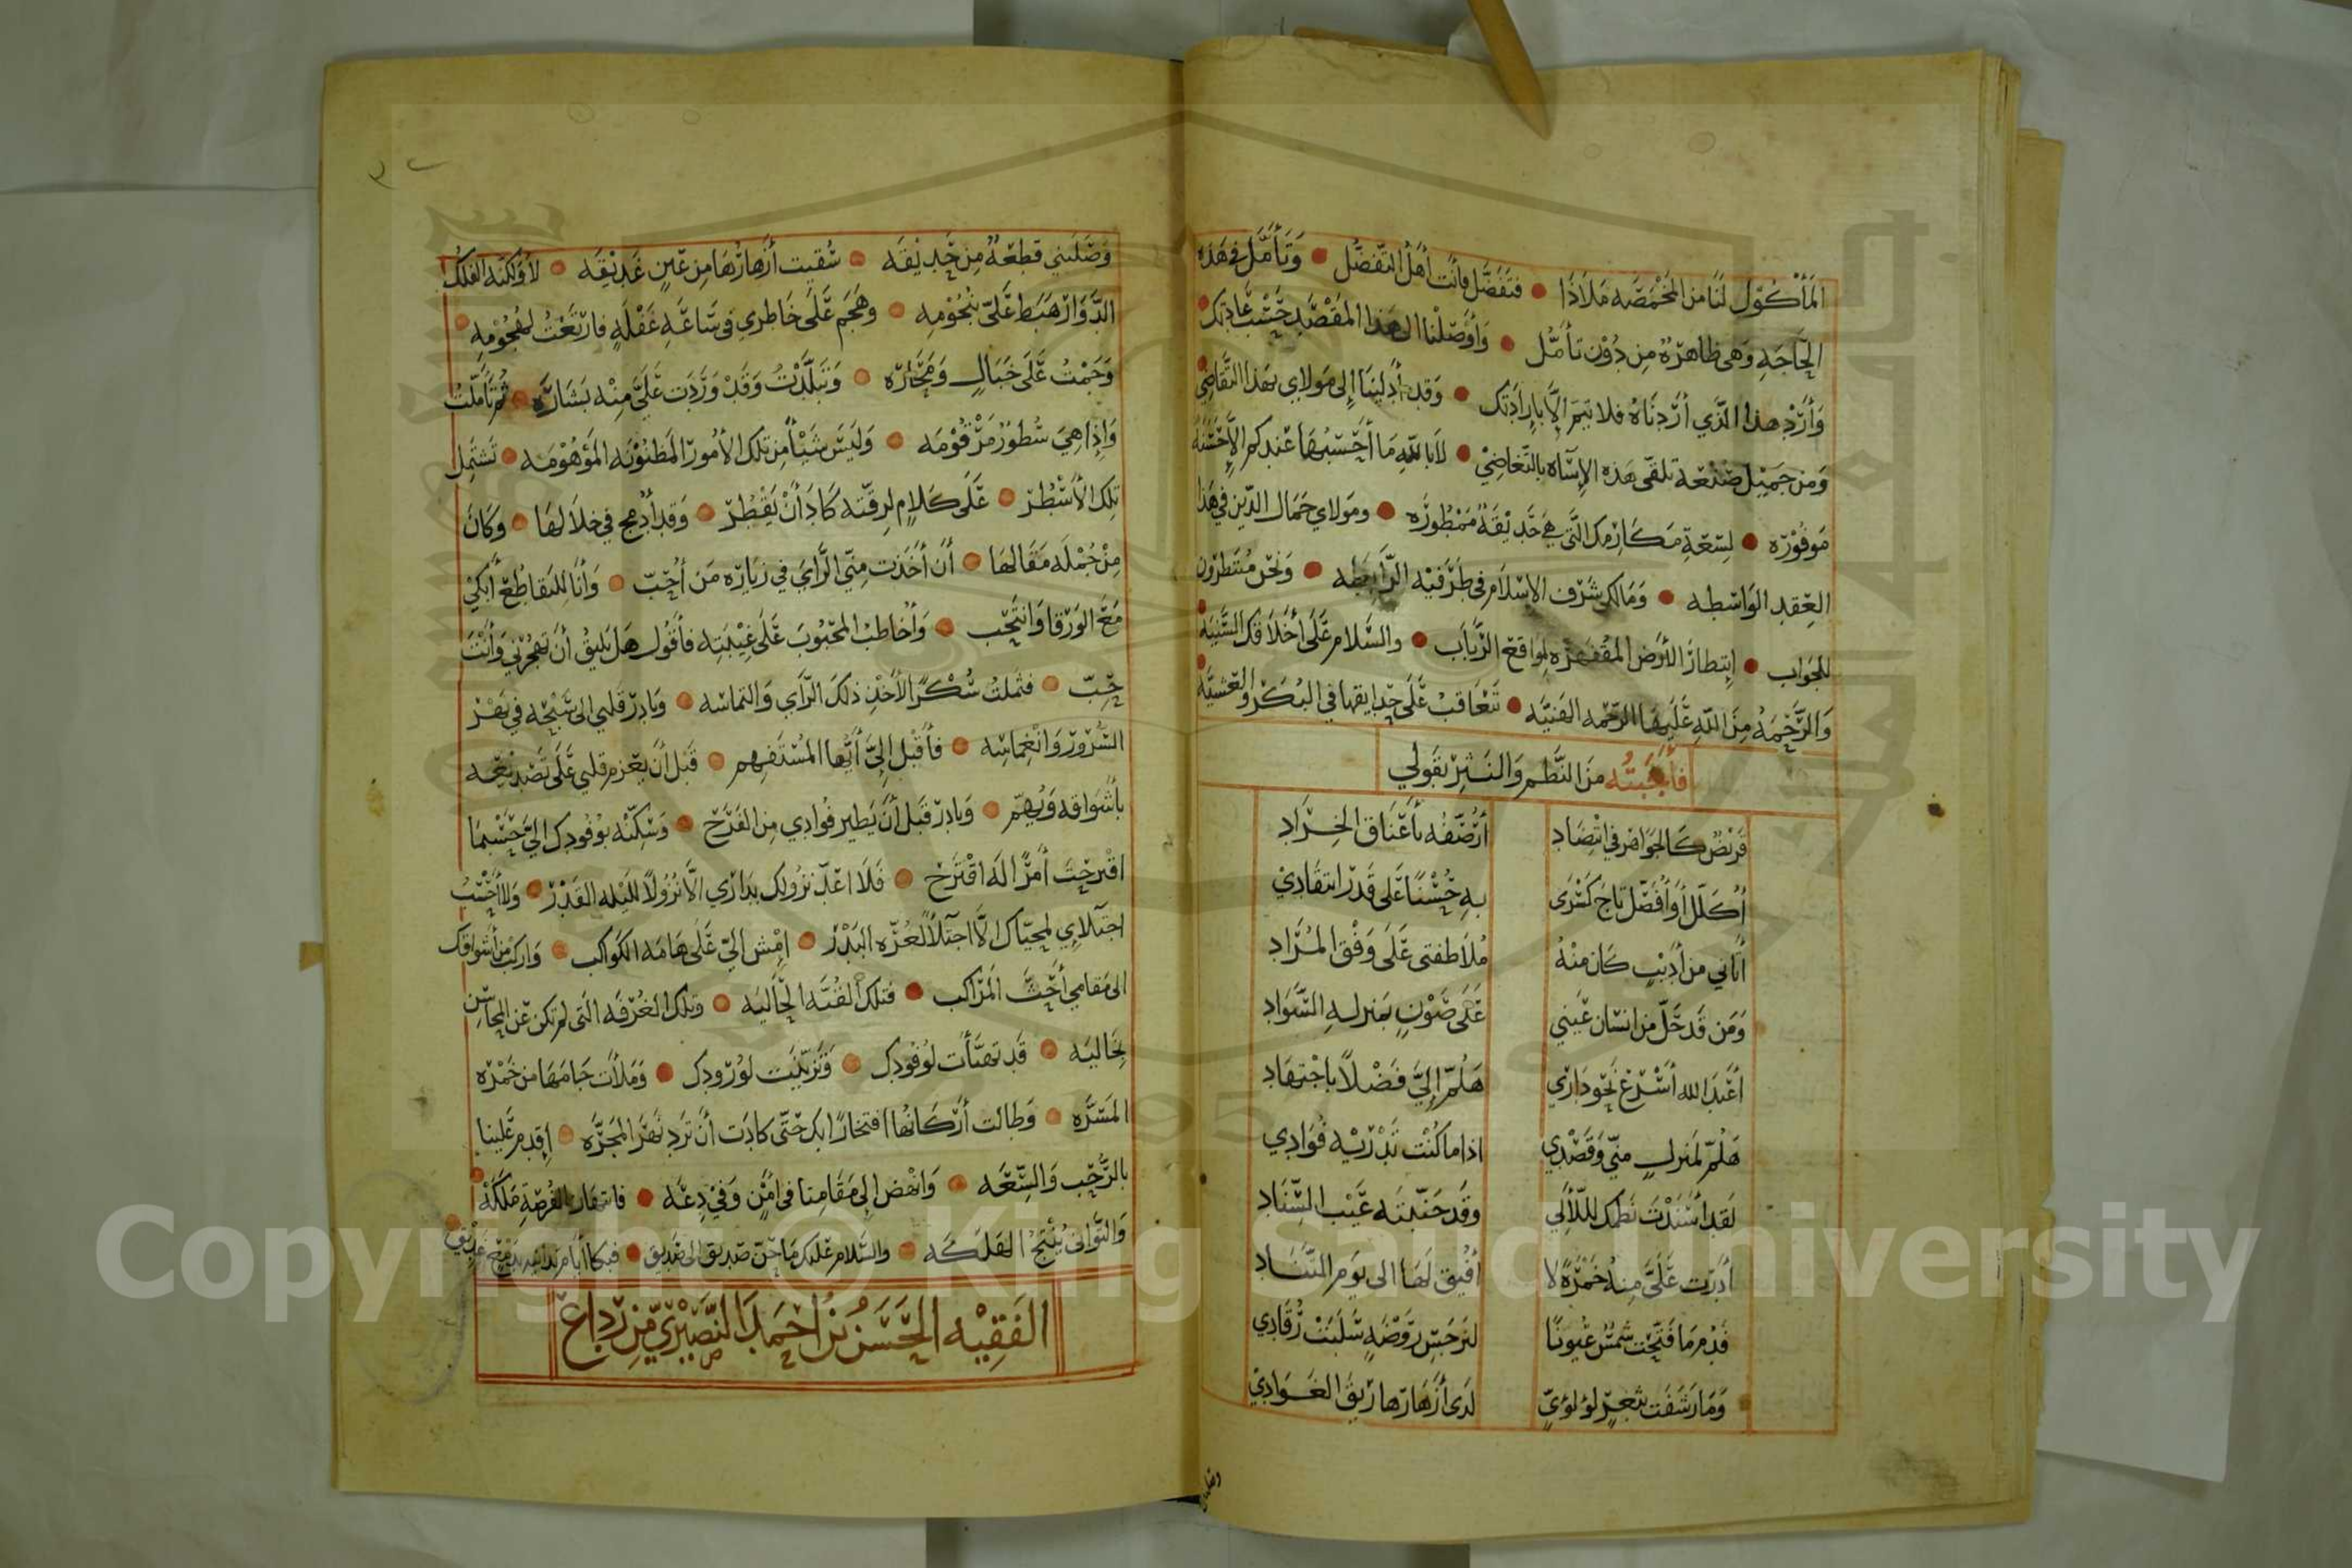 المَأكُوْل لنَا من المَخْمَصَه مَلاَذًا • فتَفَضَّل فأنت أهْلُ التّفَضُّل • وَتَأمَّل في هَذه
الحَاجَهِ وَهى ظاهرَةٌ مِن دُوْن تأمُّل • وَأوْصَلْنا الى هَذا المَقْصَدِ حَسْبَ عَادتِك
وَأَرِدْ هذا الذَّي أرَدنَاهُ فلا تيمَ إلاَّ بإرَادَتك • وَقد أدلينَا إلى مَولاي بهَذا التَّقاضِي
وَمن جَمِيْل صَنْعَة تلقى هَذه الإسَآه بالتَّغاضِيْ • لاَ بالله مَا أحْسَبُهَا عَندكم إلاَّ حَسَنَةً
مَوفُوْرَه • لسِعَةِ مَكَارمك الَّتى هِيَ حَدِيْقَةٌ مَمْطُورَه • ومَولاي جَمَال الدّين في هَذا
العِقد الوَاسطه • وَمَالك شَرَف الاسْلاَم في طَرَفيْه الرَّابطِه • وَنَحْن مُنتَظرُون
للجَوَاب • إنتِظارَ الأرَض المُقْفِرَه لِوَاقع الرَّبَاب • والسَّلام عَلَى أخْلاَقك السَّنِيَه
وَالرَّحْمَهُ مِنَ اللهِ عَلَيهَا الرّحْمَه الهَنيَّه • تَتعَاقبُ عَلَى حَدايقهَا في البُكَرْ والعَشيَّة
فأجَبتُه مِنَ النَّظم وَالنَثرْ بقَولي
قرَيْضٌ كالجَوَاهر في انْتِضَادِ أُرَصّفُه بأعْنَاق الخِرَادِ
أكلّل أوْ أفَضّل تاجَ كسْرَى بهِ حُسْنًا عَلى قَدْر انتقَادِيْ
أتاني من أدِيْبٍ كَان منْهُ مُلاَطفتى عَلَى وَفْق المُرَادِ
وَمَن قَد حَلّ من انسَان عَيني عَلَى صَوْنٍ بمَنزلهِ السَّوَادِ
أعَبْدَ الله أسْرعْ نَحْو دَارَي هَلُمّ إليَّ فَضْلاً باجْتهَادِ
هَلُمّ لمَنزلٍ منّي وَقَصْدِي اذا ما كُنْت تَدْريْه فُوَادِي
لقَد أسْنَدْتَ نَظمَك لللآلي وَقد جَنّبتَه عَيْبَ السِّنادِ
أدَرْت عَلَيَّ مِنهُ خَمْرَةً لا أفيْق لهَا الى يَوم التّنَادِ
فدُم مَا فَتّحَت شمْسٌ عُيونًا لنرجَسِ رَوْضَهٍ سَلبَتْ رُقَادِي
وَمَا رَشَفَت بثَغرٍ لؤلؤيٍّ لدَى أزْهَارَها رَيقَ الغَوَادِيْ
وَصَلَتني قطعَةٌ مِن حَدِيْقَه • سُقيت أزْهَارُهَا مِن عَينٍ غَدِيْقَه • لأوْ لكنّه الفَلكُ
الدَّوَارْ هَبَط عَليّ بنُجُوْمِه • وَهَجَم عَلَى خَاطري في سَاعَةٍ غَفْلَهٍ فارْتَعْتُ لهُجُوْمِه •
وَجَمْتُ عَلَى خَبَالٍ وَمَحَارَه • وَتَبلّدْتُ وَقَدْ وَرَدَت عَلَيَّ مِنْه بَشَارَه • ثم تأمَّلتُ
وَإذا هيَ سُطُورٌ مَرْقُوْمَه • وَليَسَ شَيْأً مِن تلكَ الأُمُور المَظنُوْنَه المَوْهُوْمَه • تَشتمِل
تلك الأسْطُر • عَلَى كَلاَمٍ لرِقّته كَادَ أنْ يَقْطُر • وَقد أدْمج في خلاَلهَا • وَكَانَ
مِنْ جُمْلَه مَقَالهَا • أن أخَذت مِنّي الرَّايَ في زيَارَه مَن أُحِبّ • وَأنَا للتقاطع أبكيْ
مَعَ الوَرْقا وَانتَحِب • وَأُخَاطبُ المَحبُوبَ عَلَى غَيْبَتهِ فأقُول هَل يَليقُ أن تَهجُرَني وَأنْتَ
حِبّ • فثَملتُ سُكْرًا لأخْذِ ذلكَ الرَّاي وَالتماسه • وَبَادِرَ قلبي الى سَبْحِه في بَحْر
السُرُوْر وَانْغمَاسِه • فأقْبل إليَّ أيُّها المُسْتَفهِم • قَبْل أن يعْزم قلبي عَلَى تَصْديْعه
بأشْوَاقه وَيُهمّ • وَبَادِرْ قَبْل أن يَطير فُوادي مِن الفَرَح • وَسَكِّنْه بوُفُودك إليَّ حَسْبمَا
اقترحْتَ أمْرًا لَه اقْتَرَح • فَلا اعَدّ نزُولك بدَاري الاَّ نزُولاً لليْله القَدْر • وَلا أحْسبُ
اجتلاَي لمحيّاك الاَّ اجتلاً لغُرّه البَدْر • إمْش اليَّ عَلَى هَامَه الكَواكب • وَاركبْ من أشوَاقك
الى مَقامي أحَثَّ المَرَاكب • فتلك القُبَّه الحَاليَه • وتلك الغُرْفَه الّتى لم تكن عَن المحَاسِن
بخَاليَه • قَد تهيّأت لوُفُودِك • وَتَزيّنت لوُرُودِك • وَمَلأت جَامَهَا من خَمْرَه
المَسَرَّه • وَطالت أرْكانُها افتخَارًا بك حَتّى كادَت أنْ تَردِ نَهْرَ المجَرَّه • إقدم عَلينا
بالرُّحْب وَالسَّعَه • وَانْهَض إلى مَقَامِنا في أمْنٍ وَفي دِعَه • فانتهاز الفُرْصَةِ مَلَكَهْ •
وَالتَّوَاني يُنتِجُ الهَلكَه • والسَّلام عَليك مَا حَنّ صَديق الى صَدِيق •
الفَقِيْه الحَسَن بْنُ احمَد النَّصِيْريّ مِن رَدَاعْ